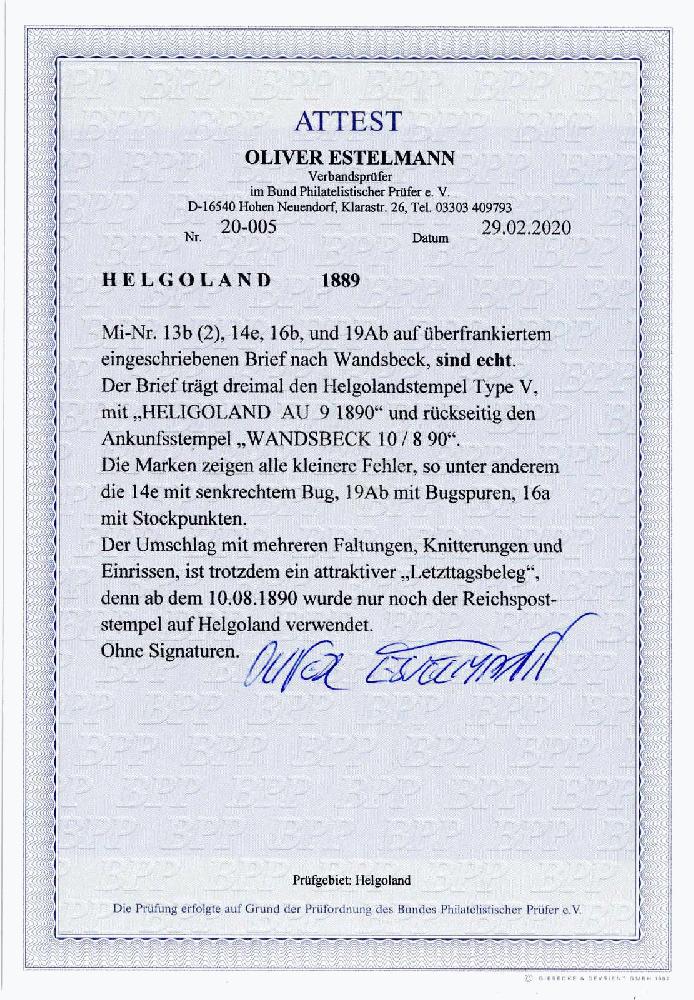 ATTEST
OLIVER ESTELMANN
Verbandsprüfer
im Bund Philatelistischer Prüfer e. V.
D-16540 Hohen Neuendorf, Klarastr. 26, Tel. 03303 409793
Nr. 20-005 Datum 29.02.2020
HELGOLAND 1889
Mi-Nr. 13b (2), 14e, 16b, und 19Ab auf überfrankiertem
eingeschriebenen Brief nach Wandsbeck, sind echt.
Der Brief trägt dreimal den Helgolandstempel Type V,
mit „HELIGOLAND AU 9 1890“ und rückseitig den
Ankunfsstempel „WANDSBECK 10 / 8 90“.
Die Marken zeigen alle kleinere Fehler, so unter anderem
die 14e mit senkrechtem Bug, 19Ab mit Bugspuren, 16a
mit Stockpunkten.
Der Umschlag mit mehreren Faltungen, Knitterungen und
Einrissen, ist trotzdem ein attraktiver „Letzttagsbeleg“,
denn ab dem 10.08.1890 wurde nur noch der Reichspost-
stempel auf Helgoland verwendet.
Ohne Signaturen. Oliver Estelmann
Prüfgebiet: Helgoland
Die Prüfung erfolgte auf Grund der Prüfordnung des Bundes Philatelistischer Prüfer e.V.
© GIESECKE & DEVRIENT GMBH